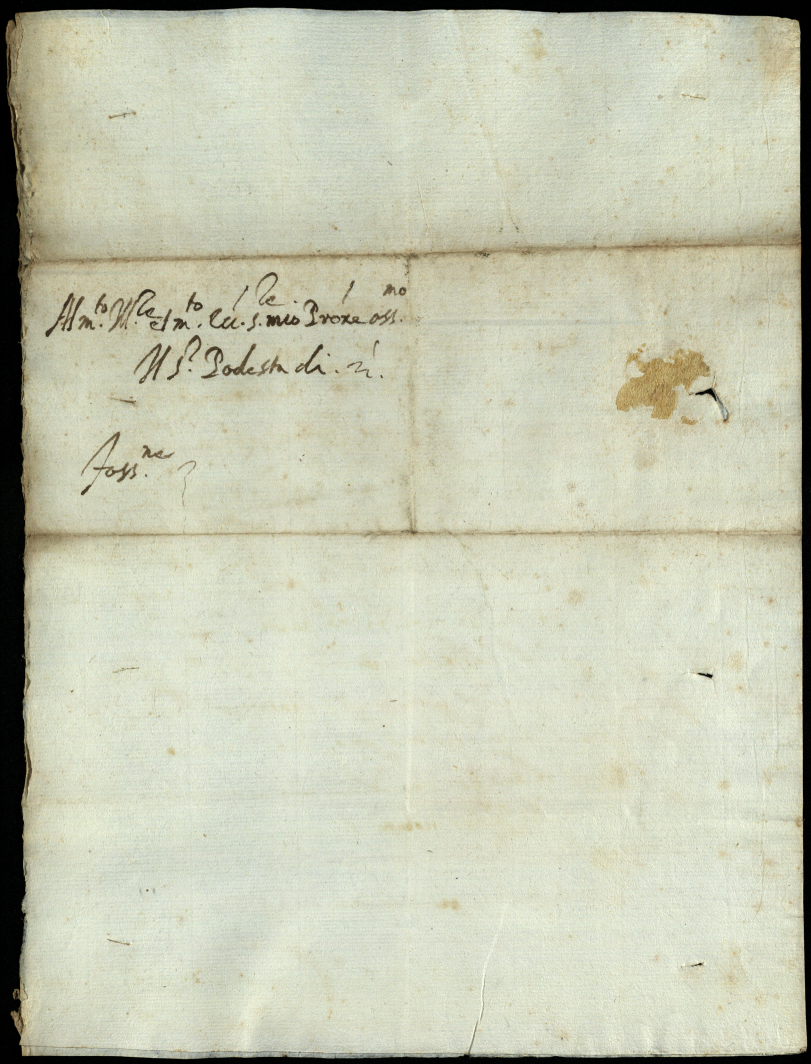 Al m.to Ill.re et m.to Ecc.te s. mio Prone oss.mo
Il S.r Podesta di
foss.ne